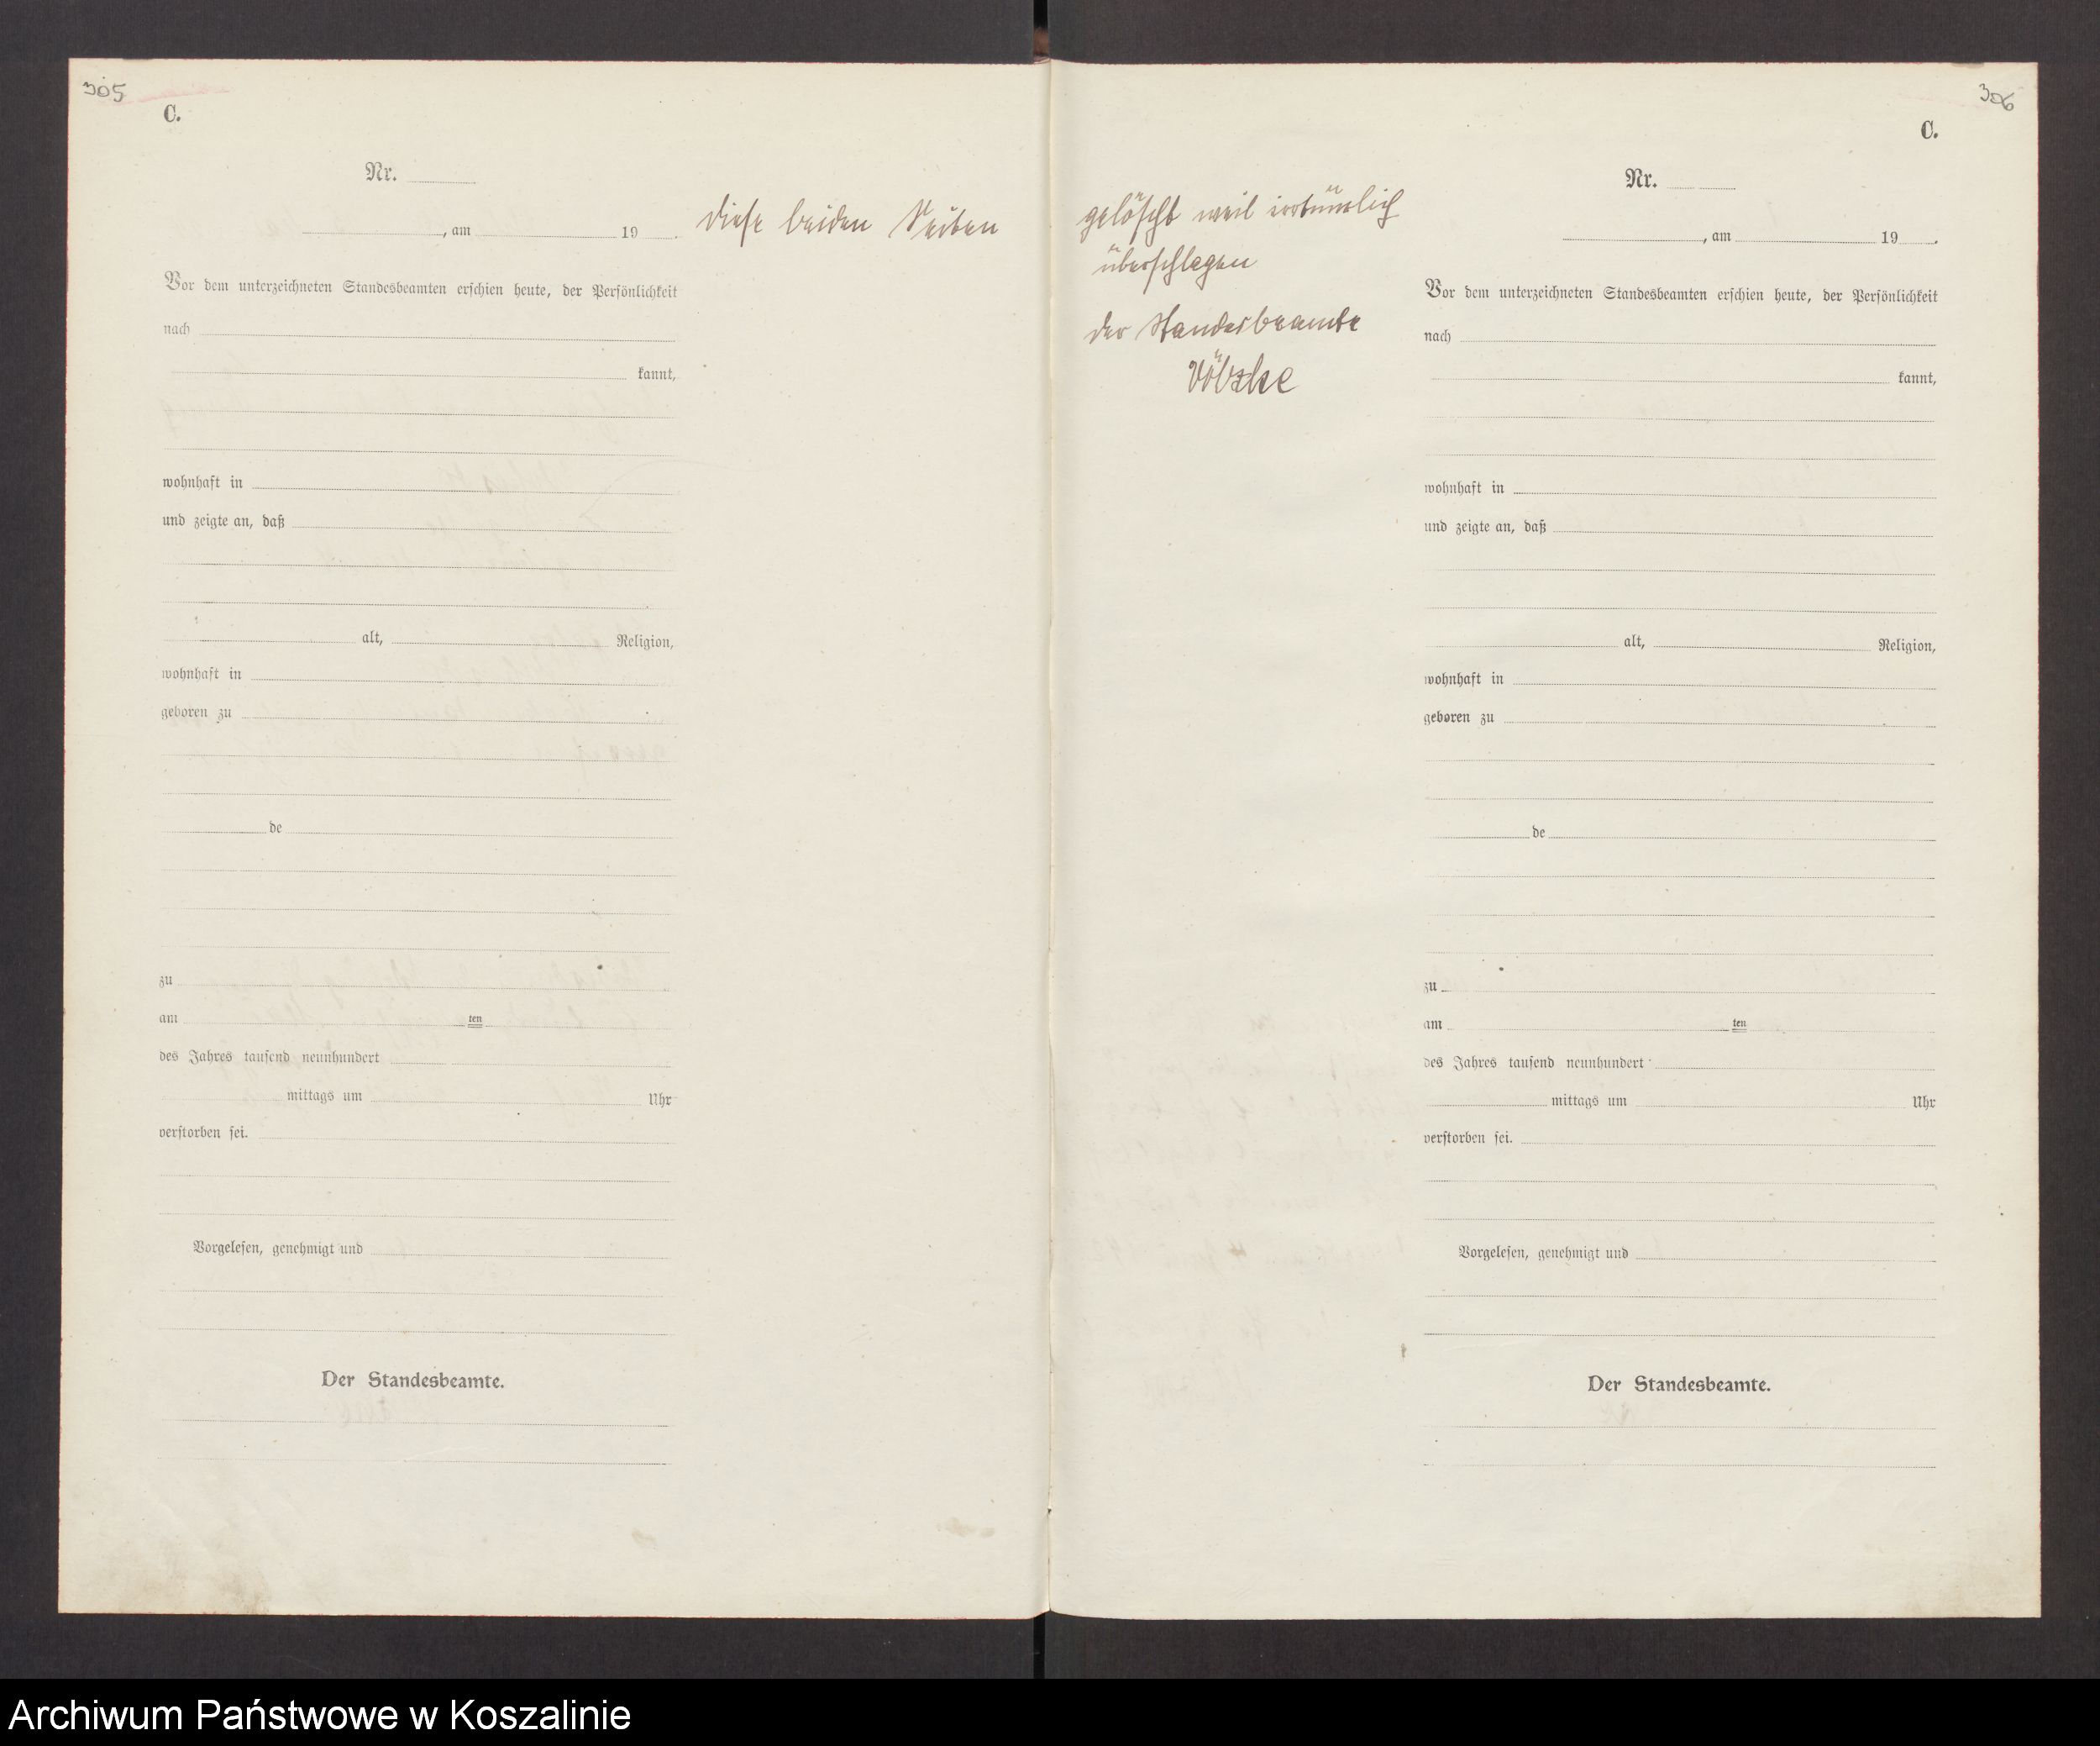 305
C.
Nr.
, am 19 .
Vor dem unterzeichneten Standesbeamten erschien heute, der Persönlichkeit
nach
kannt,
wohnhaft in
und zeigte an, daß
alt, Religion,
wohnhaft in
geboren zu
de
zu
am ten
des Jahres tausend neunhundert
mittags um Uhr
verstorben sei.
Vorgelesen, genehmigt und
Der Standesbeamte.
diese beiden Seiten
306
C.
gelöscht weil irrtümlich
überschlagen
der Standesbeamte
Völzke
Nr.
, am 19 .
Vor dem unterzeichneten Standesbeamten erschien heute, der Persönlichkeit
nach
kannt,
wohnhaft in
und zeigte an, daß
alt, Religion,
wohnhaft in
geboren zu
de
zu
am ten
des Jahres tausend neunhundert
mittags um Uhr
verstorben sei.
Vorgelesen, genehmigt und
Der Standesbeamte.
Archiwum Państwowe w Koszalinie